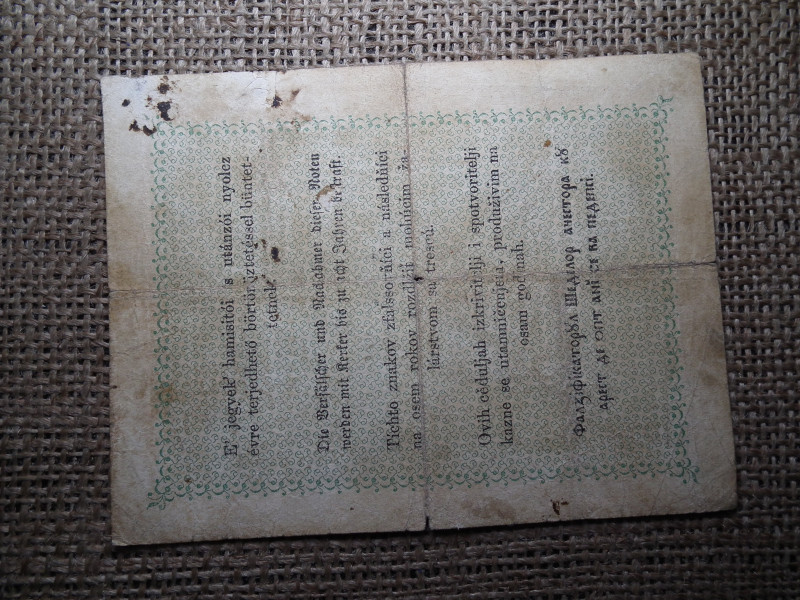 E' jegyek' hamisitói s utánzói nyolcz
évre terjedhető börtönöztetéssel büntet-
tetnek.
Die Verfälscher und Nachahmer dieser Noten
werden mit Kerker bis zu acht Jahren bestraft.
Tichto znakov zfalssorňíci a následňíci
na osem rokov rozdlžiť mohúcim ža-
lárstvom sa tresců.
Ovih cèduljah izkrivitelji i spotvoritelji
kazne se utamničenjeta, produživim na
osam god nah.
Фалзіфікаторꙋл Шедꙋлор ачестора кꙋ
арест де опт анй се ва педепсі.